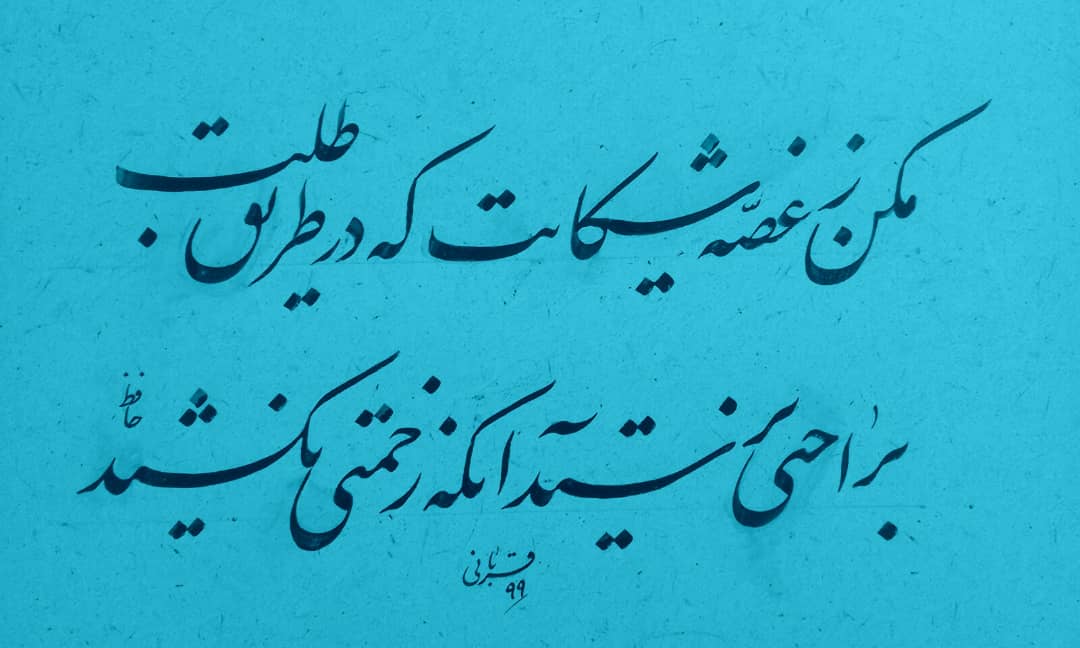 مکن ز غصّه شکایت که در طریق طلب
براحتی نرسید آنکه زحمتی نکشید
حافظ
قربانی
۹۹